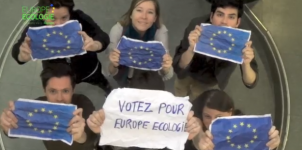 EUROPE
ECOLOGIE
VOTEZ POUR
EUROPE ECOLOGIE